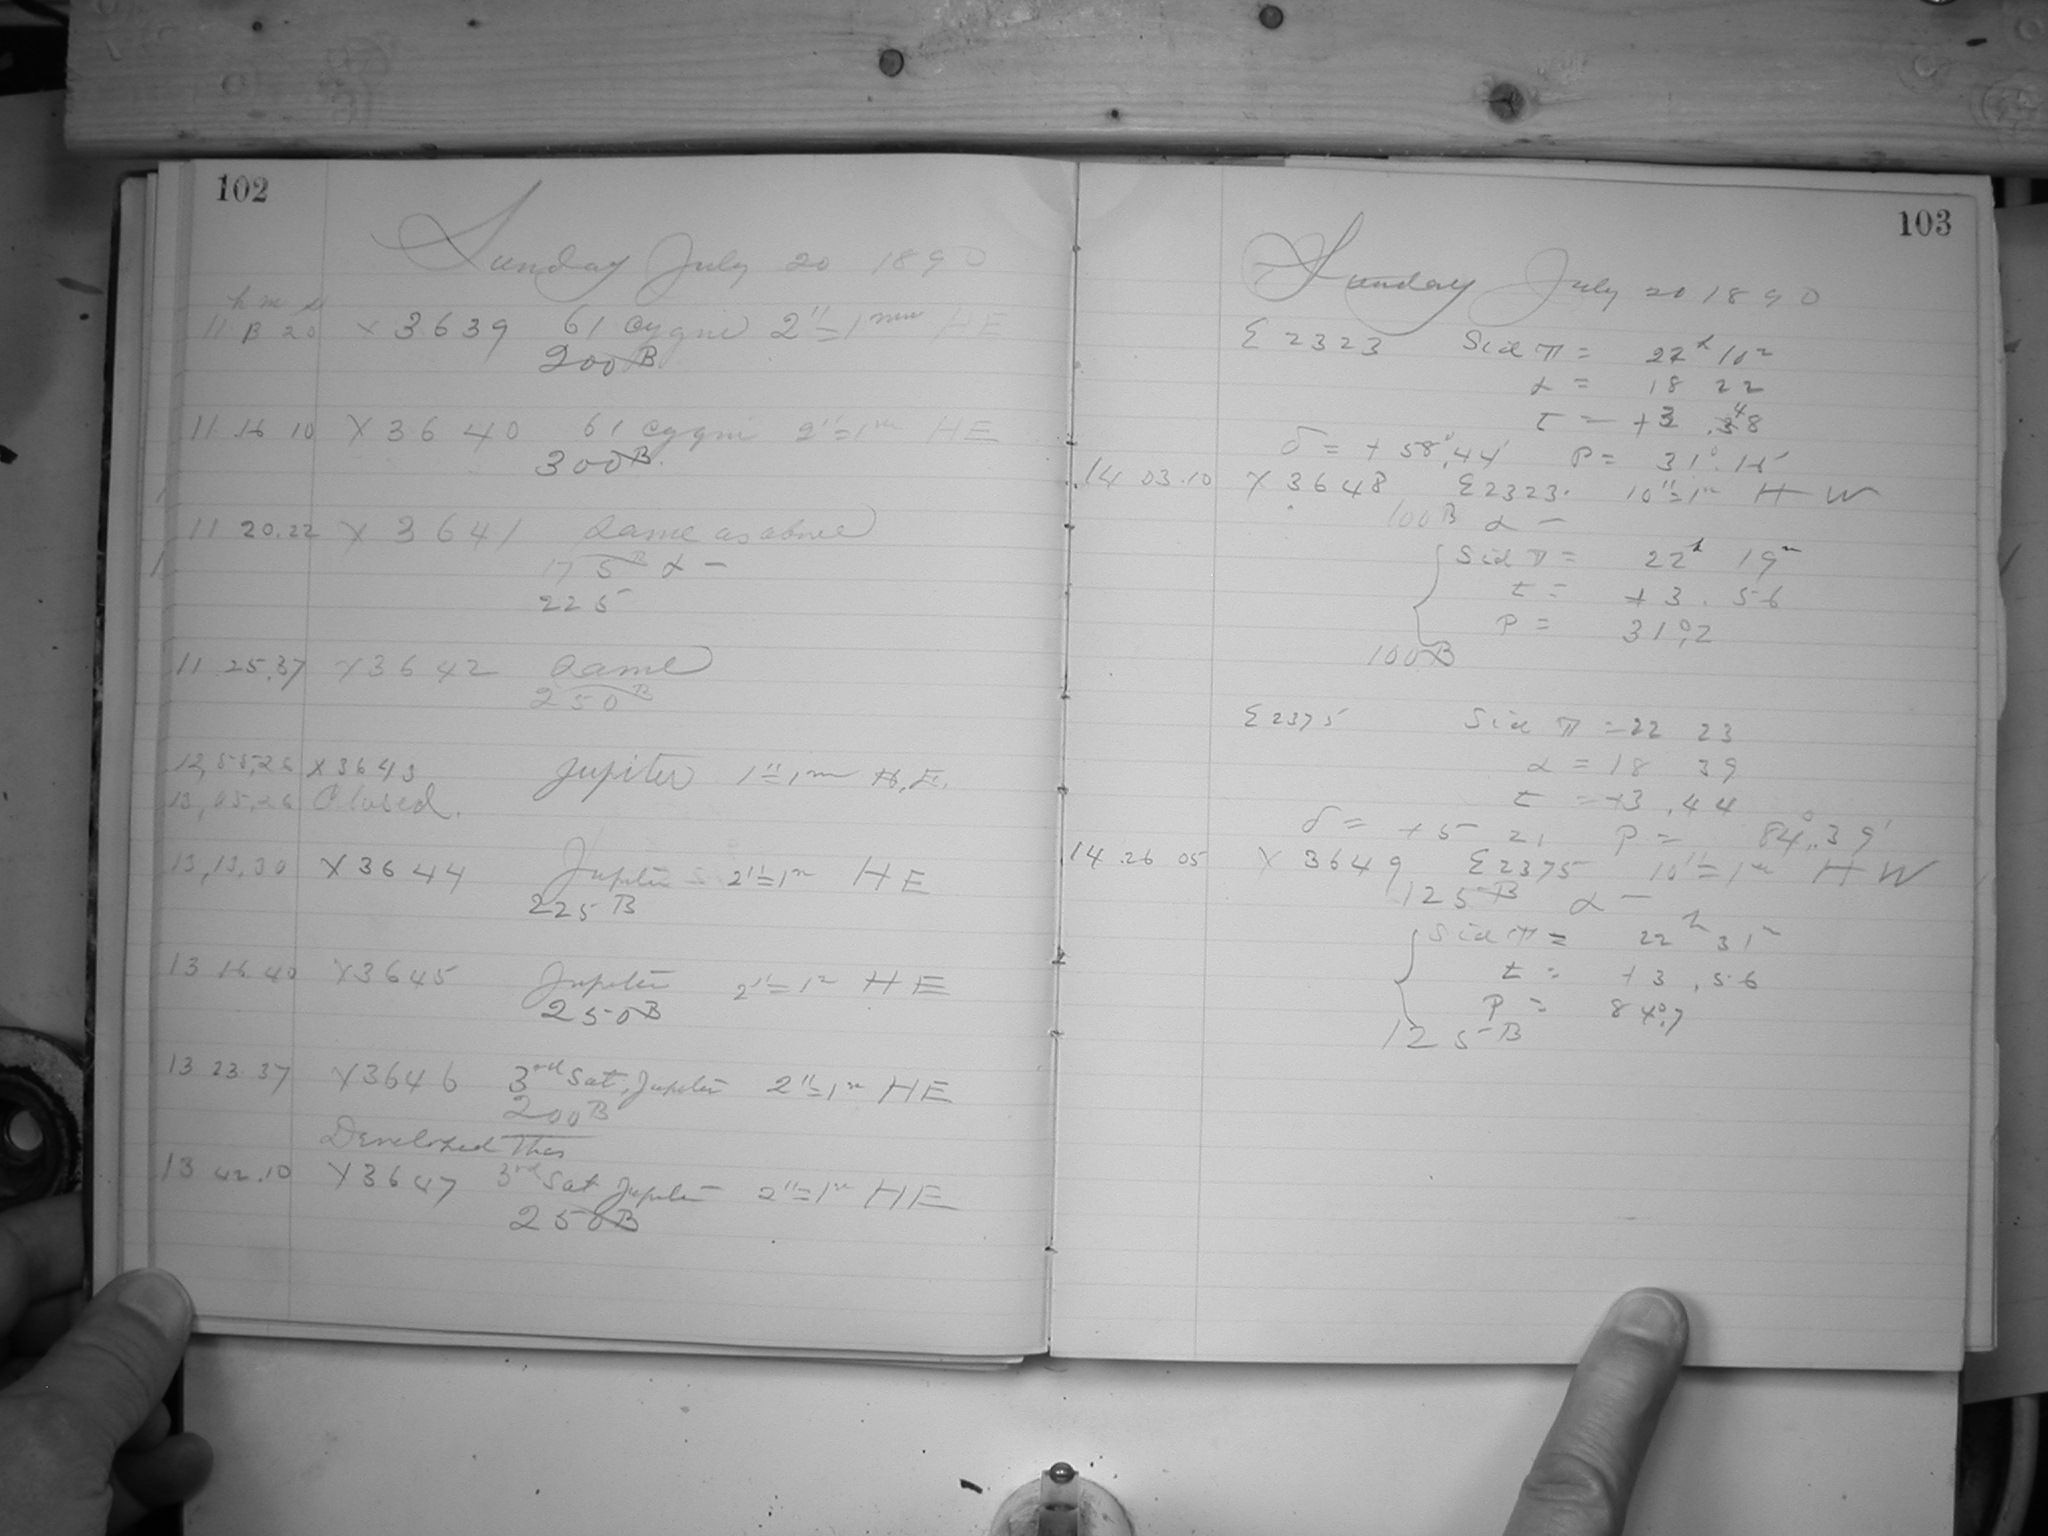 102
Sunday July 20 1890
h m s
11 13 20 X 3639 61 Cygni 2"=1mm HE
200B
11 16 10 X 3640 61 Cygni 2"=1m HE
300B.
11 20.22 X 3641 Same as above
175B α –
225
11 25.37 X3642 Same
250B
12,55,26 X3643 Jupiter 1"=1m H.E.
13,05,26 Closed.
13,13,30 X3644 Jupiter 2"=1m HE
225 B
13 16.40 X3645 Jupiter 2"=1m HE
250B
13 23 37 X3646 3rd Sat. Jupiter 2"=1m HE
200B
Developed Thes
13 42.10 X3647 3rd Sat Jupiter 2"=1m HE
250B
103
Sunday July 20 1890
Σ 2323 Sid T = 22h 10m
α = 18 22
t = +3 .48
δ = + 58°.44' P = 31°.16'
14 03.10 X 3648 Σ2323. 10"=1m H W
100B α –
Sid T = 22h 19m
t = +3. 56
P = 31°.2
100B
Σ 2375 Sid T = 22 23
α = 18 39
t = +3 .44
δ = +5 21 P = 84°.39'
14.26 05 X 3649 Σ2375 10"=1m H W
125B α –
Sid T = 22h 31m
t = +3 .56
P = 84°.7
125B